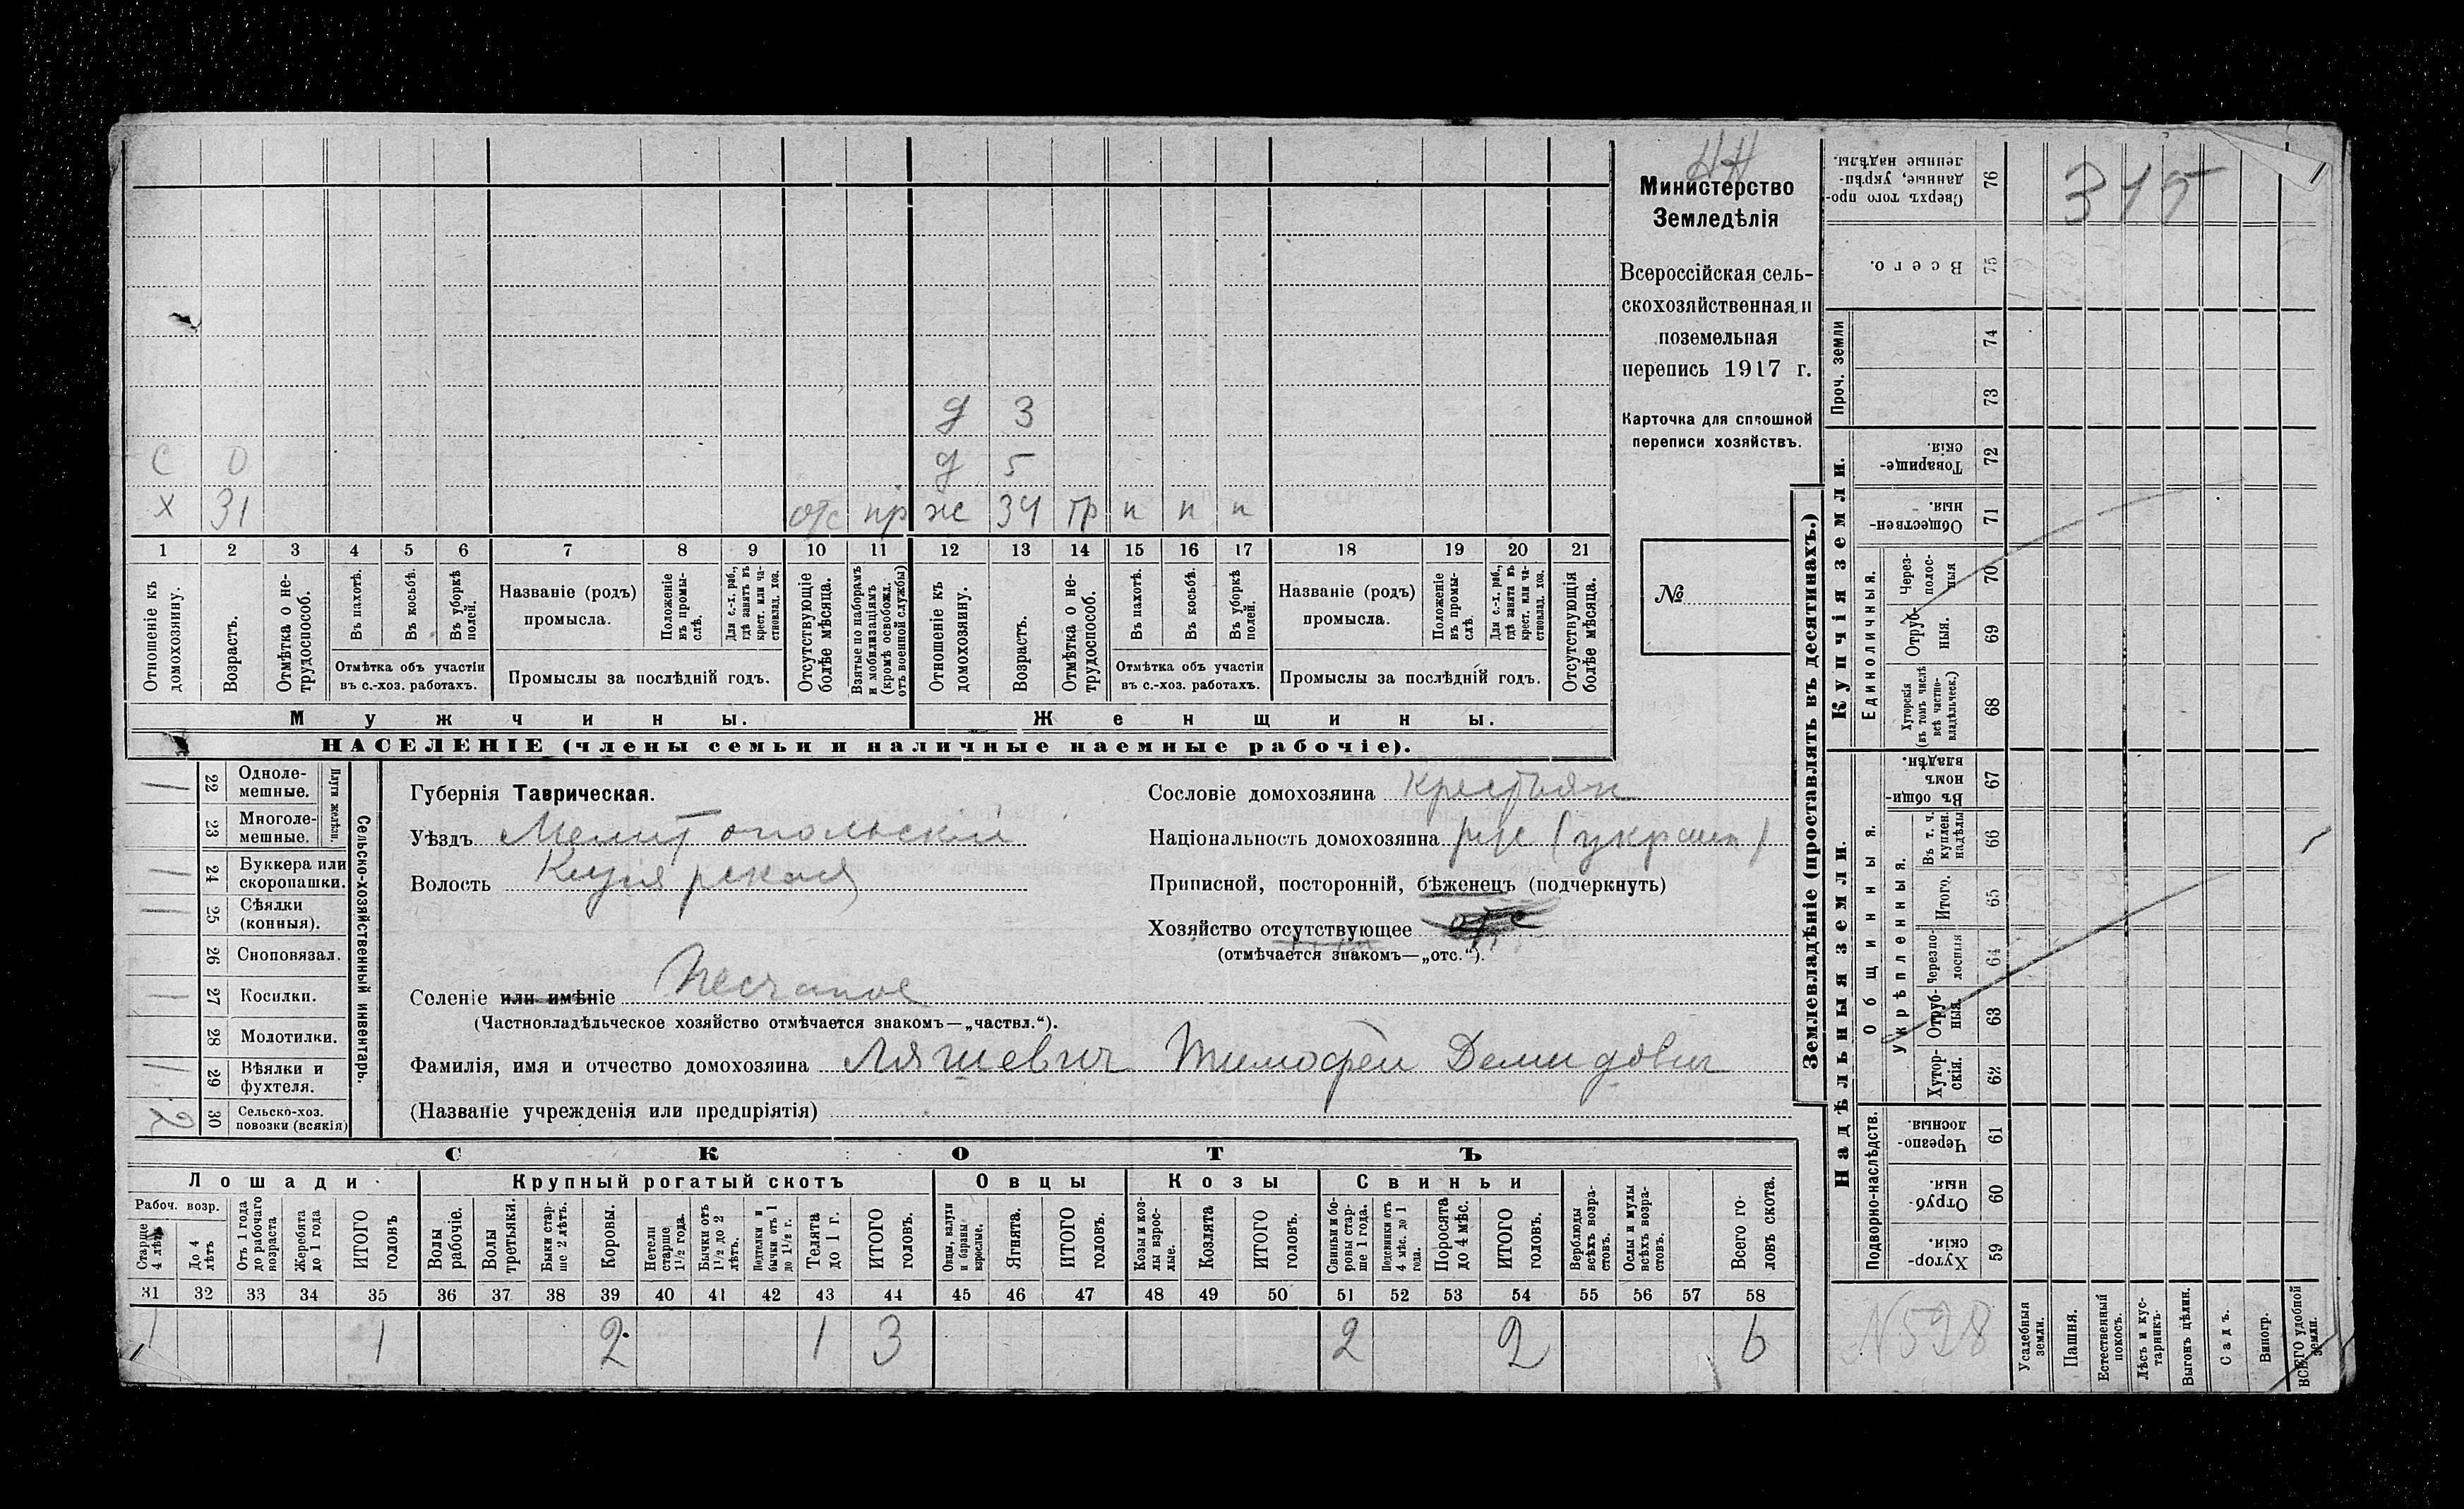 НН
Министерство
Земледѣлія
Всероссійская сель-
скохозяйственная и
поземельная
перепись 1917 г.
Карточка для сплошной
переписи хозяйствъ.
№
д 3
С 0 д 5
Х 31 отс пр ж 34 тр п п п
1 2 3 4 5 6 7 8 9 10 11 12 13 14 15 16 17 18 19 20 21
Отношеніе къ домохозяину.
Возрастъ.
Отмѣтка о не-трудоспособ.
Въ пахотѣ.
Въ косьбѣ.
Въ уборкѣ полей.
Отмѣтка объ участіи
въ с.-хоз. работахъ.
Названіе (родъ)
промысла.
Положеніе въ промы-слѣ.
Для с.-х. раб., гдѣ занятъ въ крест. или ча-стновлад. хоз.
Промыслы за послѣдній годъ.
Отсутствующіе болѣе мѣсяца.
Взятые по наборамъ и мобилизаціямъ (кромѣ освобожд. отъ военной службы)
Отношеніе къ домохозяину.
Возрастъ.
Отмѣтка о не-трудоспособ.
Въ пахотѣ.
Въ косьбѣ.
Въ уборкѣ полей.
Отмѣтка объ участіи
въ с.-хоз. работахъ.
Названіе (родъ)
промысла.
Положеніе въ промы-слѣ.
Для с.-х. раб., гдѣ занята въ крест. или ча-стновлад. хоз.
Промыслы за послѣдній годъ.
Отсутствующія болѣе мѣсяца.
Мужчины.
Женщины.
НАСЕЛЕНІЕ (члены семьи и наличные наемные рабочіе).
Сельско-хозяйственный инвентарь.
Плуги желѣзн.
1 22 Одноле-мешные.
23 Многоле-мешные.
1 24 Буккера или скоропашки.
1 25 Сѣялки (конныя).
26 Сноповязал.
1 27 Косилки.
28 Молотилки.
1 29 Вѣялки и фухтеля.
2 30 Сельско-хоз. повозки (всякія)
Губернія Таврическая.
Уѣздъ Мелитопольскій
Волость
Селеніе или имѣніе Песчаное
(Частновладѣльческое хозяйство отмѣчается знакомъ—„частвл.“).
Фамилія, имя и отчество домохозяина Ляшевич Тимофей Демидович
(Названіе учрежденія или предпріятія)
Сословіе домохозяина крестьян
Національность домохозяина рус (украин)
Приписной, посторонній, бѣженецъ (подчеркнуть)
Хозяйство отсутствующее отс
(отмѣчается знакомъ—„отс.“).
СКОТЪ
Лошади
Крупный рогатый скотъ
Овцы
Козы
Свиньи
Рабоч. возр.
Старше 4 лѣтъ
До 4 лѣтъ
Отъ 1 года до рабочаго возраста
Жеребята до 1 года
ИТОГО головъ
Волы рабочіе.
Волы третьяки.
Быки стар-ше 2 лѣтъ.
Коровы.
Нетели старше 1½ года.
Бычки отъ 1½ до 2 лѣтъ.
Подтелки и бычки отъ 1 до 1½ г.
Телята до 1 г.
ИТОГО головъ.
Овцы, валухи и бараны взрослые.
Ягнята.
ИТОГО головъ.
Козы и коз-лы взрос-лые.
Козлята
ИТОГО головъ.
Свиньи и бо-ровы стар-ше 1 года.
Подсвинки отъ 4 мѣс. до 1 года.
Поросята до 4 мѣс.
ИТОГО головъ.
Верблюды всѣхъ возра-стовъ.
Ослы и мулы всѣхъ возра-стовъ.
Всего го-ловъ скота.
31 32 33 34 35 36 37 38 39 40 41 42 43 44 45 46 47 48 49 50 51 52 53 54 55 56 57 58
1 1 2 1 3 2 2 6
Землевладѣніе (проставлять въ десятинахъ.)
Сверхъ того про-данные, укрѣп-ленные надѣлы. 76
315
Всего. 75
Проч. земли
74
73
Купчія земли.
Товарище-скія 72
Обществен-ныя. 71
Единоличныя.
Через-полос-ныя 70
Отруб-ныя. 69
Хуторскія (въ томъ числѣ всѣ частно-владѣльческ.) 68
Надѣльныя земли.
Общинныя.
Въ общи-номъ владѣн. 67
Укрѣпленныя.
Въ т. ч. куплен. надѣлы 66
Итого. 65
Черезпо-лосныя 64
Отруб-ныя. 63
Хутор-скія. 62
Подворно-наслѣдств.
Черезпо-лосныя. 61
Отруб-ныя. 60
Хутор-скія. 59
N528
Усадебныя земли.
Пашня.
Естественный покосъ.
Лѣсъ и кус-тарникъ.
Выгонъ цѣлин.
Садъ.
Виногр.
ВСЕГО удобной земли.